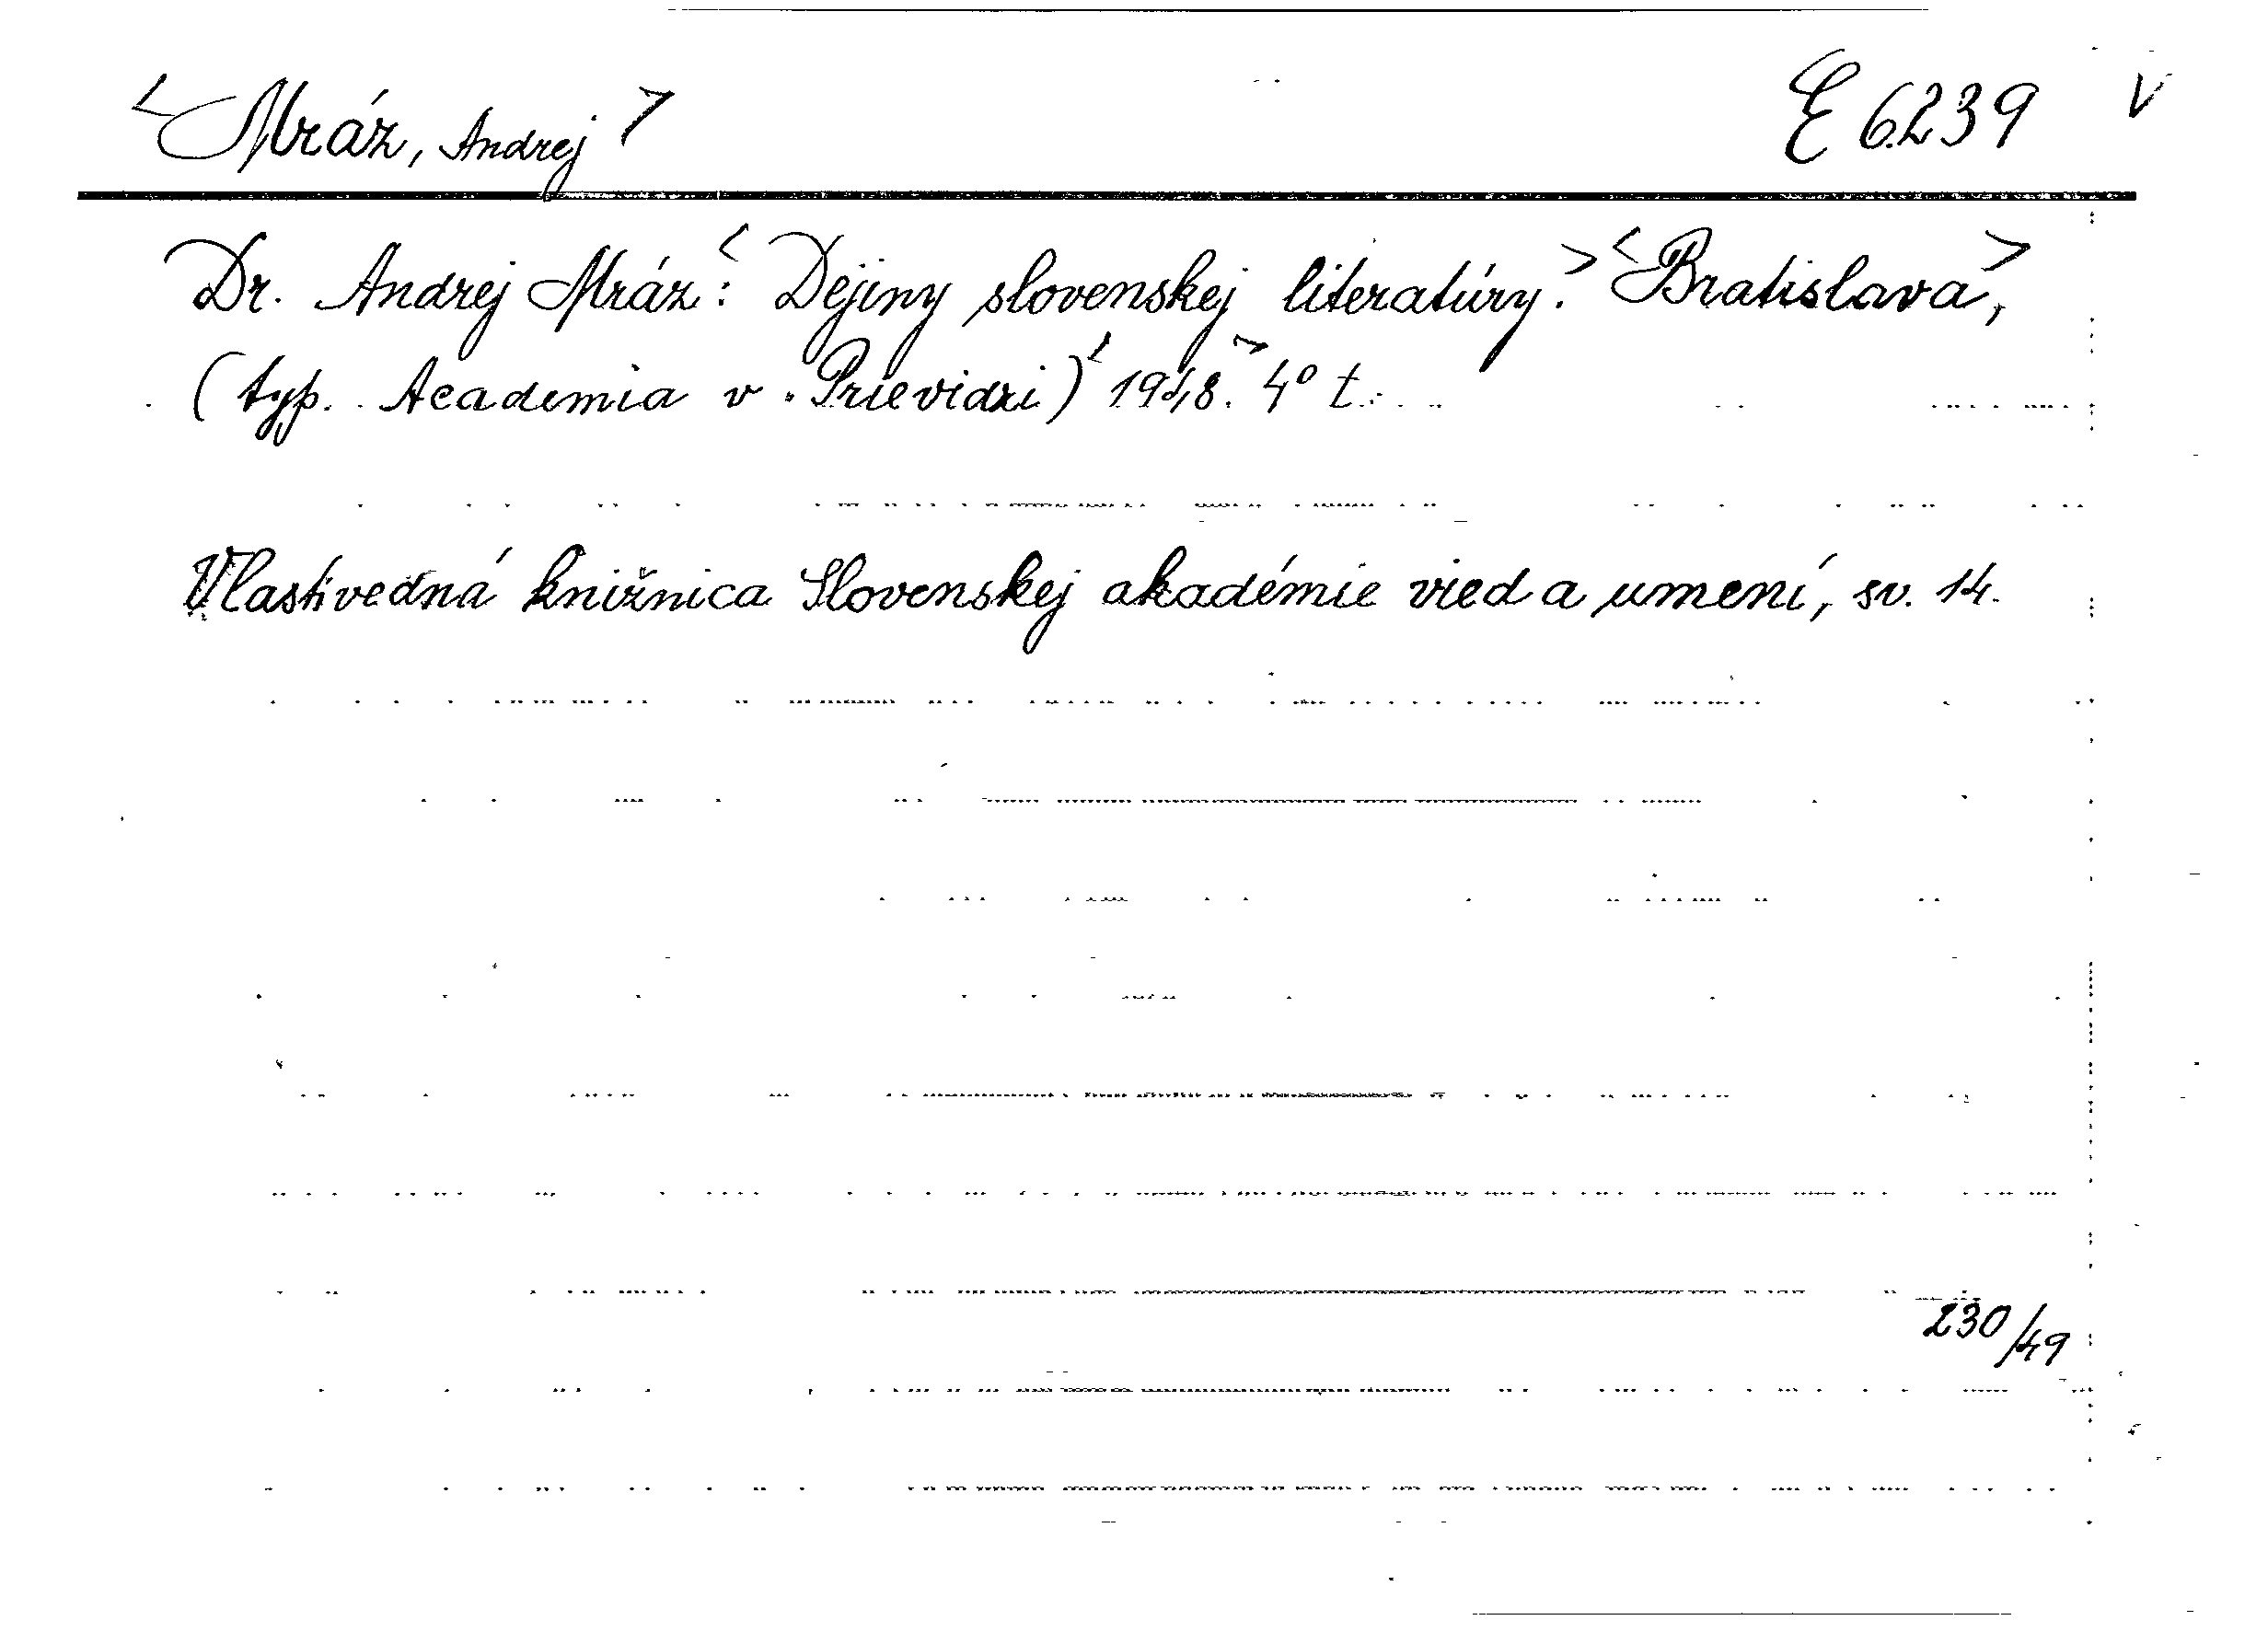 <Mráz, Andrej> E 6239 V
Dr. Andrej Mráz: <Dejiny slovenskej literatúry.> <Bratislava>,
(typ. Academia v Prievidzi) <1948.> 4° t.
Vlastivedná knižnica Slovenskej akadémie vied a umení, sv. 14.
230/49